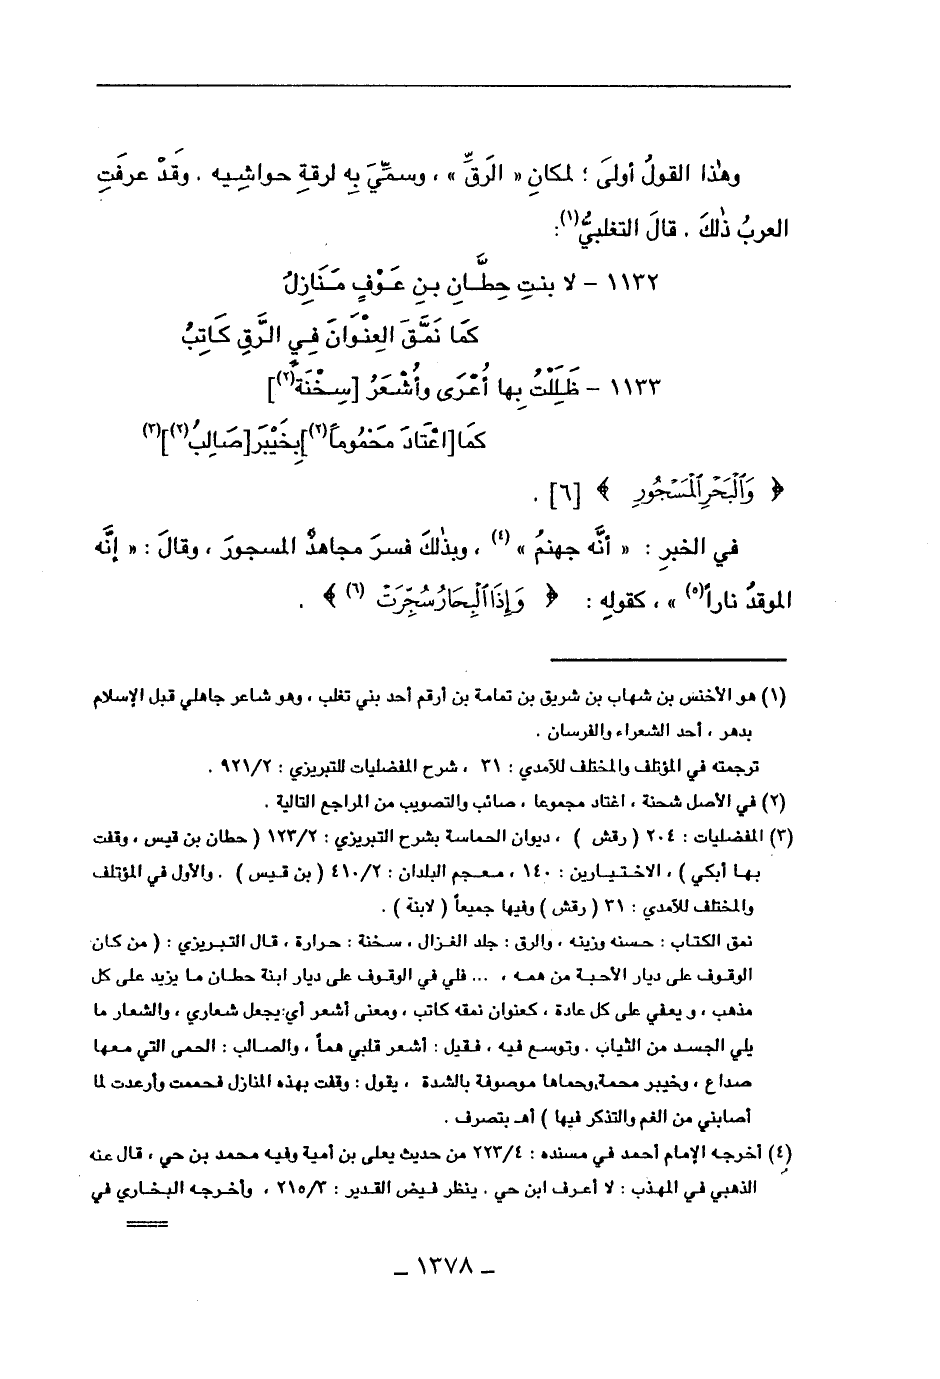 وهٰذا القولُ أولىَ ؛ لمكانِ « الرَقِّ » ، وسميَّ بِه لرقةِ حواشِيه . وقَدْ عرفَتِ
العربُ ذٰلكَ . قالَ التغلبيُّ(١):
١١٣٢ – لا بنتِ حِطَّانِ بنِ عَوْفٍ مَنَازِلُ
كمَا نَمَّقَ العِنْوَانَ فِي الرَّقِ كَاتِبُ
١١٣٣ – ظَلِلْتُ بِها أُعْرَى وأُشْعَرُ [سِخْنَةً(٢)]
كمَا[اعْتَادَ مَحْمُوماً(٢)]بِخَيْبَرَ[صَالِبُ(٢)](٣)
﴿ وَٱلْبَحْرِ ٱلْمَسْجُورِ ﴾ [٦] .
في الخبرِ : « أنَّه جهنمُ »(٤) ، وبذٰلكَ فسرَ مجاهدٌ المسجورَ ، وقالَ : « إنَّه
الموقدُ ناراً(٥) » ، كقولِه : ﴿ وَإِذَا ٱلْبِحَارُ سُجِّرَتْ (٦) ﴾ .
(١) هو الأخنس بن شهاب بن شريق بن ثمامة بن أرقم أحد بني تغلب ، وهو شاعر جاهلي قبل الإسلام
بدهر ، أحد الشعراء والفرسان .
ترجمته في المؤتلف والمختلف للآمدي : ٣١ ، شرح المفضليات للتبريزي : ٩٢١/٢ .
(٢) في الأصل شحنة ، اغتاد مجموعا ، صائب والتصويب من المراجع التالية .
(٣) المفضليات : ٢٠٤ ( رقش ) ، ديوان الحماسة بشرح التبريزي : ١٢٣/٢ ( حطان بن قيس ، وقفت
بها أبكي ) ، الاختيارين : ١٤٠ ، معجم البلدان : ٤١٠/٢ ( بن قيس ) . والأول في المؤتلف
والمختلف للآمدي : ٣١ ( رقش ) وفيها جميعاً ( لابنة ) .
نمق الكتاب : حسنه وزينه ، والرق : جلد الغزال ، سخنة : حرارة ، قال التبريزي : ( من كان
الوقوف على ديار الأحبة من همه ، ... فلي في الوقوف على ديار ابنة حطان ما يزيد على كل
مذهب ، و يعفي على كل عادة ، كعنوان نمقه كاتب ، ومعنى أشعر أي:يجعل شعاري ، والشعار ما
يلي الجسد من الثياب . وتوسع فيه ، فقيل : أشعر قلبي هماً ، والصالب : الحمى التي معها
صداع ، وخيبر محمة،وحماها موصوفة بالشدة ، يقول : وقفت بهذه المنازل فحممت وأرعدت لما
أصابني من الغم والتذكر فيها ) أهـ بتصرف .
(٤) أخرجه الإمام أحمد في مسنده : ٢٢٣/٤ من حديث يعلى بن أمية وفيه محمد بن حي ، قال عنه
الذهبي في المهذب : لا أعرف ابن حي . ينظر فيض القدير : ٢١٥/٣ ، وأخرجه البخاري في
– ١٣٧٨ –